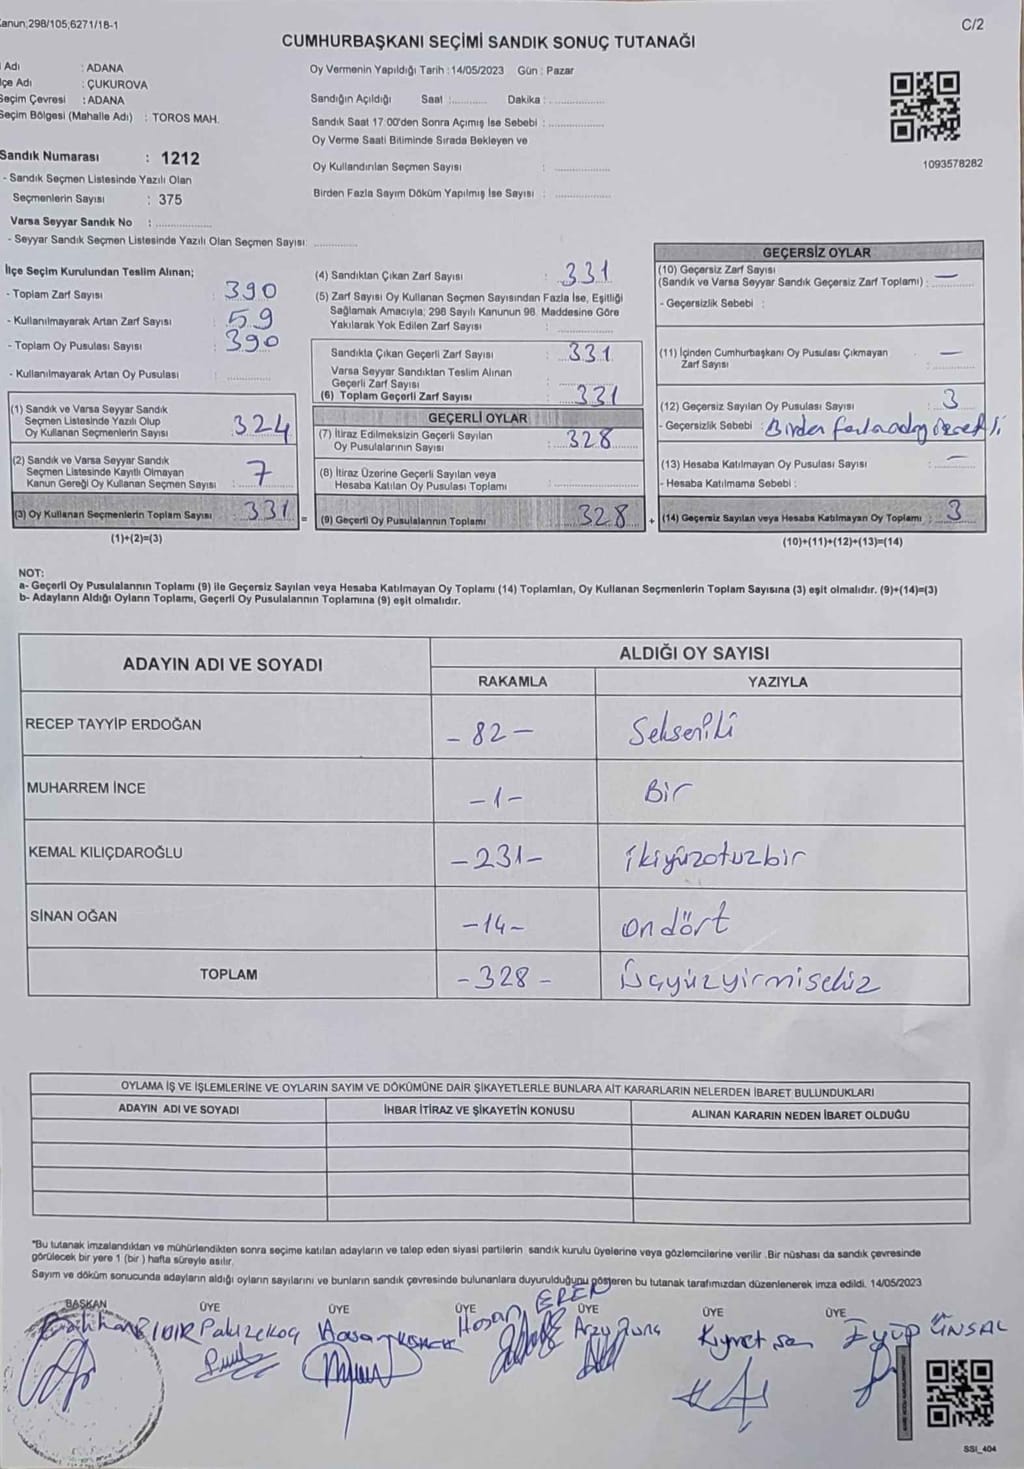 Kanun;298/105;6271/18-1
C/2
CUMHURBAŞKANI SEÇİMİ SANDIK SONUÇ TUTANAĞI
Adı : ADANA
İlçe Adı : ÇUKUROVA
Seçim Çevresi : ADANA
Seçim Bölgesi (Mahalle Adı) : TOROS MAH.
Oy Vermenin Yapıldığı Tarih : 14/05/2023 Gün : Pazar
Sandığın Açıldığı Saat :............ Dakika : ................
Sandık Saat 17:00'den Sonra Açımış İse Sebebi : ................
Oy Verme Saati Bitiminde Sırada Bekleyen ve
Oy Kullandırılan Seçmen Sayısı : ................
Birden Fazla Sayım Döküm Yapılmış İse Sayısı : ................
1093578282
Sandık Numarası : 1212
- Sandık Seçmen Listesinde Yazılı Olan
Seçmenlerin Sayısı : 375
Varsa Seyyar Sandık No : ................
- Seyyar Sandık Seçmen Listesinde Yazılı Olan Seçmen Sayısı: ............
İlçe Seçim Kurulundan Teslim Alınan;
- Toplam Zarf Sayısı : 390
- Kullanılmayarak Artan Zarf Sayısı : 59
- Toplam Oy Pusulası Sayısı : 390
- Kullanılmayarak Artan Oy Pusulası : ............
(1) Sandık ve Varsa Seyyar Sandık
Seçmen Listesinde Yazılı Olup
Oy Kullanan Seçmenlerin Sayısı : 324
(2) Sandık ve Varsa Seyyar Sandık
Seçmen Listesinde Kayıtlı Olmayan
Kanun Gereği Oy Kullanan Seçmen Sayısı : 7
(3) Oy Kullanan Seçmenlerin Toplam Sayısı : 331 =
(1)+(2)=(3)
(4) Sandıktan Çıkan Zarf Sayısı : 331
(5) Zarf Sayısı Oy Kullanan Seçmen Sayısından Fazla İse, Eşitliği
Sağlamak Amacıyla; 298 Sayılı Kanunun 98. Maddesine Göre
Yakılarak Yok Edilen Zarf Sayısı : ................
Sandıkta Çıkan Geçerli Zarf Sayısı : 331
Varsa Seyyar Sandıktan Teslim Alınan
Geçerli Zarf Sayısı : ................
(6) Toplam Geçerli Zarf Sayısı : 331
GEÇERLİ OYLAR
(7) İtiraz Edilmeksizin Geçerli Sayılan
Oy Pusulalarının Sayısı : 328
(8) İtiraz Üzerine Geçerli Sayılan veya
Hesaba Katılan Oy Pusulası Toplamı : ................
(9) Geçerli Oy Pusulalarının Toplamı : 328 +
GEÇERSİZ OYLAR
(10) Geçersiz Zarf Sayısı
(Sandık ve Varsa Seyyar Sandık Geçersiz Zarf Toplamı) : —
- Geçersizlik Sebebi :
(11) İçinden Cumhurbaşkanı Oy Pusulası Çıkmayan
Zarf Sayısı : —
(12) Geçersiz Sayılan Oy Pusulası Sayısı : 3
- Geçersizlik Sebebi : Birden fazla aday
(13) Hesaba Katılmayan Oy Pusulası Sayısı : —
- Hesaba Katılmama Sebebi :
(14) Geçersiz Sayılan veya Hesaba Katılmayan Oy Toplamı : 3
(10)+(11)+(12)+(13)=(14)
NOT:
a- Geçerli Oy Pusulalarının Toplamı (9) ile Geçersiz Sayılan veya Hesaba Katılmayan Oy Toplamı (14) Toplamları, Oy Kullanan Seçmenlerin Toplam Sayısına (3) eşit olmalıdır. (9)+(14)=(3)
b- Adayların Aldığı Oyların Toplamı, Geçerli Oy Pusulalarının Toplamına (9) eşit olmalıdır.
ADAYIN ADI VE SOYADI ALDIĞI OY SAYISI
RAKAMLA YAZIYLA
RECEP TAYYİP ERDOĞAN - 82 - Sekseniki
MUHARREM İNCE -1- Bir
KEMAL KILIÇDAROĞLU -231- ikiyüzotuzbir
SİNAN OĞAN -14- on dört
TOPLAM -328- Üçyüzyirmisekiz
OYLAMA İŞ VE İŞLEMLERİNE VE OYLARIN SAYIM VE DÖKÜMÜNE DAİR ŞİKAYETLERLE BUNLARA AİT KARARLARIN NELERDEN İBARET BULUNDUKLARI
ADAYIN ADI VE SOYADI İHBAR İTİRAZ VE ŞİKAYETİN KONUSU ALINAN KARARIN NEDEN İBARET OLDUĞU
"Bu tutanak imzalandıktan ve mühürlendikten sonra seçime katılan adayların ve talep eden siyasi partilerin sandık kurulu üyelerine veya gözlemcilerine verilir .Bir nüshası da sandık çevresinde
görülecek bir yere 1 (bir) hafta süreyle asılır.
Sayım ve döküm sonucunda adayların aldığı oyların sayılarını ve bunların sandık çevresinde bulunanlara duyurulduğunu gösteren bu tutanak tarafımızdan düzenlenerek imza edildi. 14/05/2023
BAŞKAN ÜYE ÜYE ÜYE ÜYE ÜYE ÜYE
Pakize Koç Hasan Hasan EREN Arzu Kıymet Şen Eyüp ÜNSAL
SSI_404